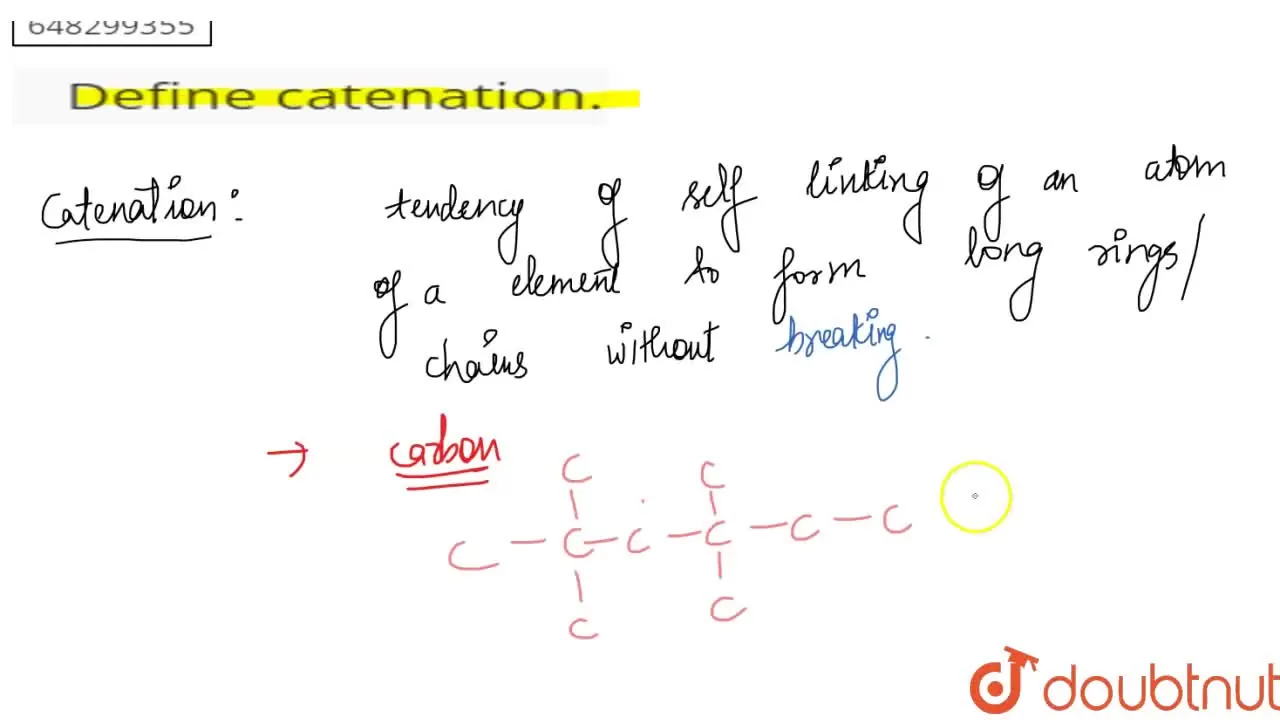 648299355
Define catenation.
Catenation: tendency of self linking of an atom
of a element to form long rings/
chains without breaking.
→ carbon
C C
C - C - C - C - C - C
C C
doubtnut